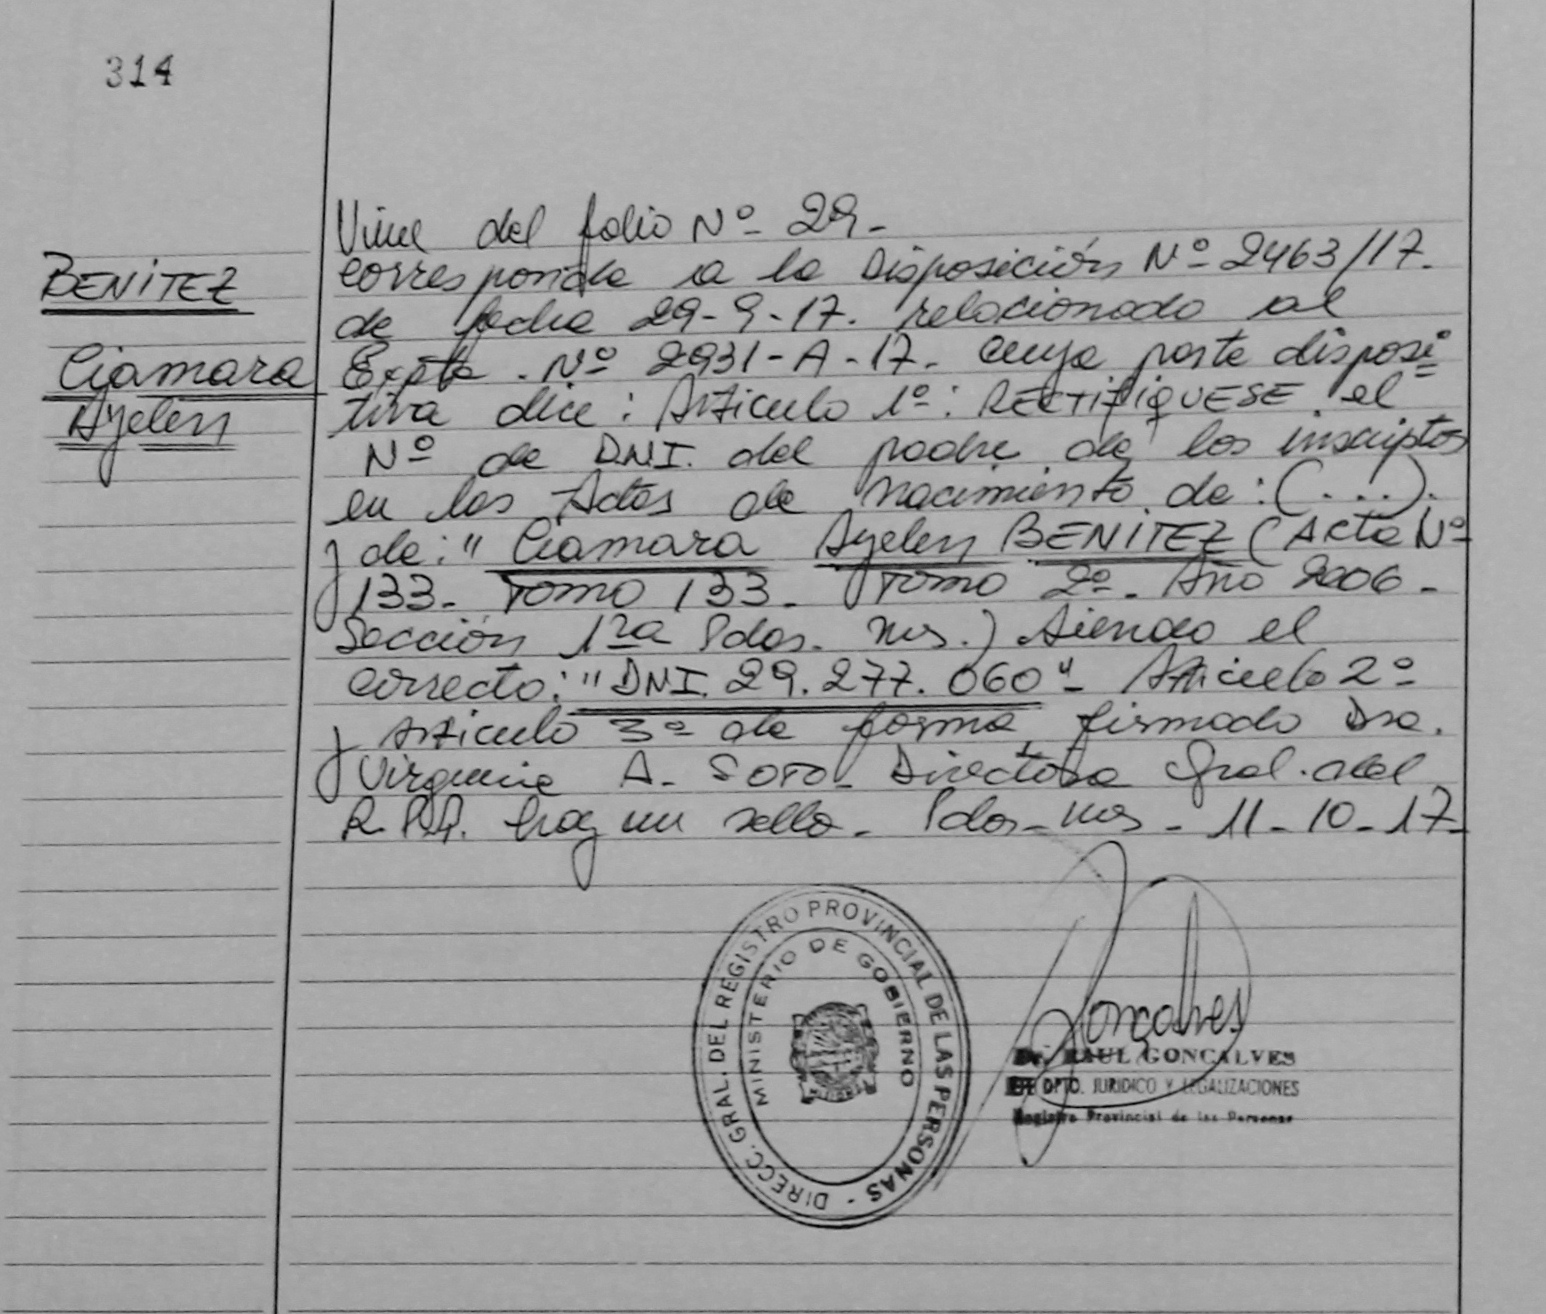 314
BENITEZ
Ciamara
Ayelen
Viene del folio Nº 29-
corresponde a la Disposición Nº 2463/17.
de fecha 29-9-17. relacionado al
Expte. Nº 2931-A-17- cuya parte disposi
tiva dice: Articulo 1º: RECTIFIQUESE el
Nº de DNI. del padre de los inscriptos
en las Actas de nacimiento de: (...).
y de: " Ciamara Ayelen BENITEZ (Acta Nº
133- Tomo 133- Tomo 2º- Año 2006-
Sección 1ra Pdas. Ms.) siendo el
correcto: "DNI. 29.277.060"- Articulo 2º
y Articulo 3º de forma firmado Dra.
Virginia A. Soto Directora Gral. del
R.P.P. hay un sello- Pdas-Ms- 11-10-17-
DIRECC. GRAL. DEL REGISTRO PROVINCIAL DE LAS PERSONAS -
MINISTERIO DE GOBIERNO
Goncalves
Dr. RAUL GONCALVES
JEFE DPTO. JURIDICO Y LEGALIZACIONES
Registro Provincial de las Personas